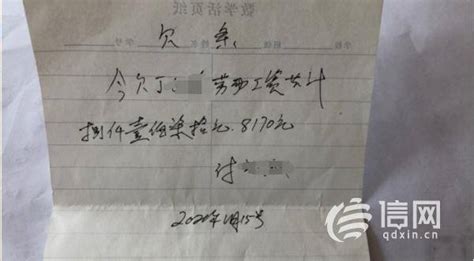 数学活页纸
欠条
今欠丁 劳务工资共计
捌仟壹佰柒拾元.8170元
付
2020年1月15号
信网
qdxin.cn